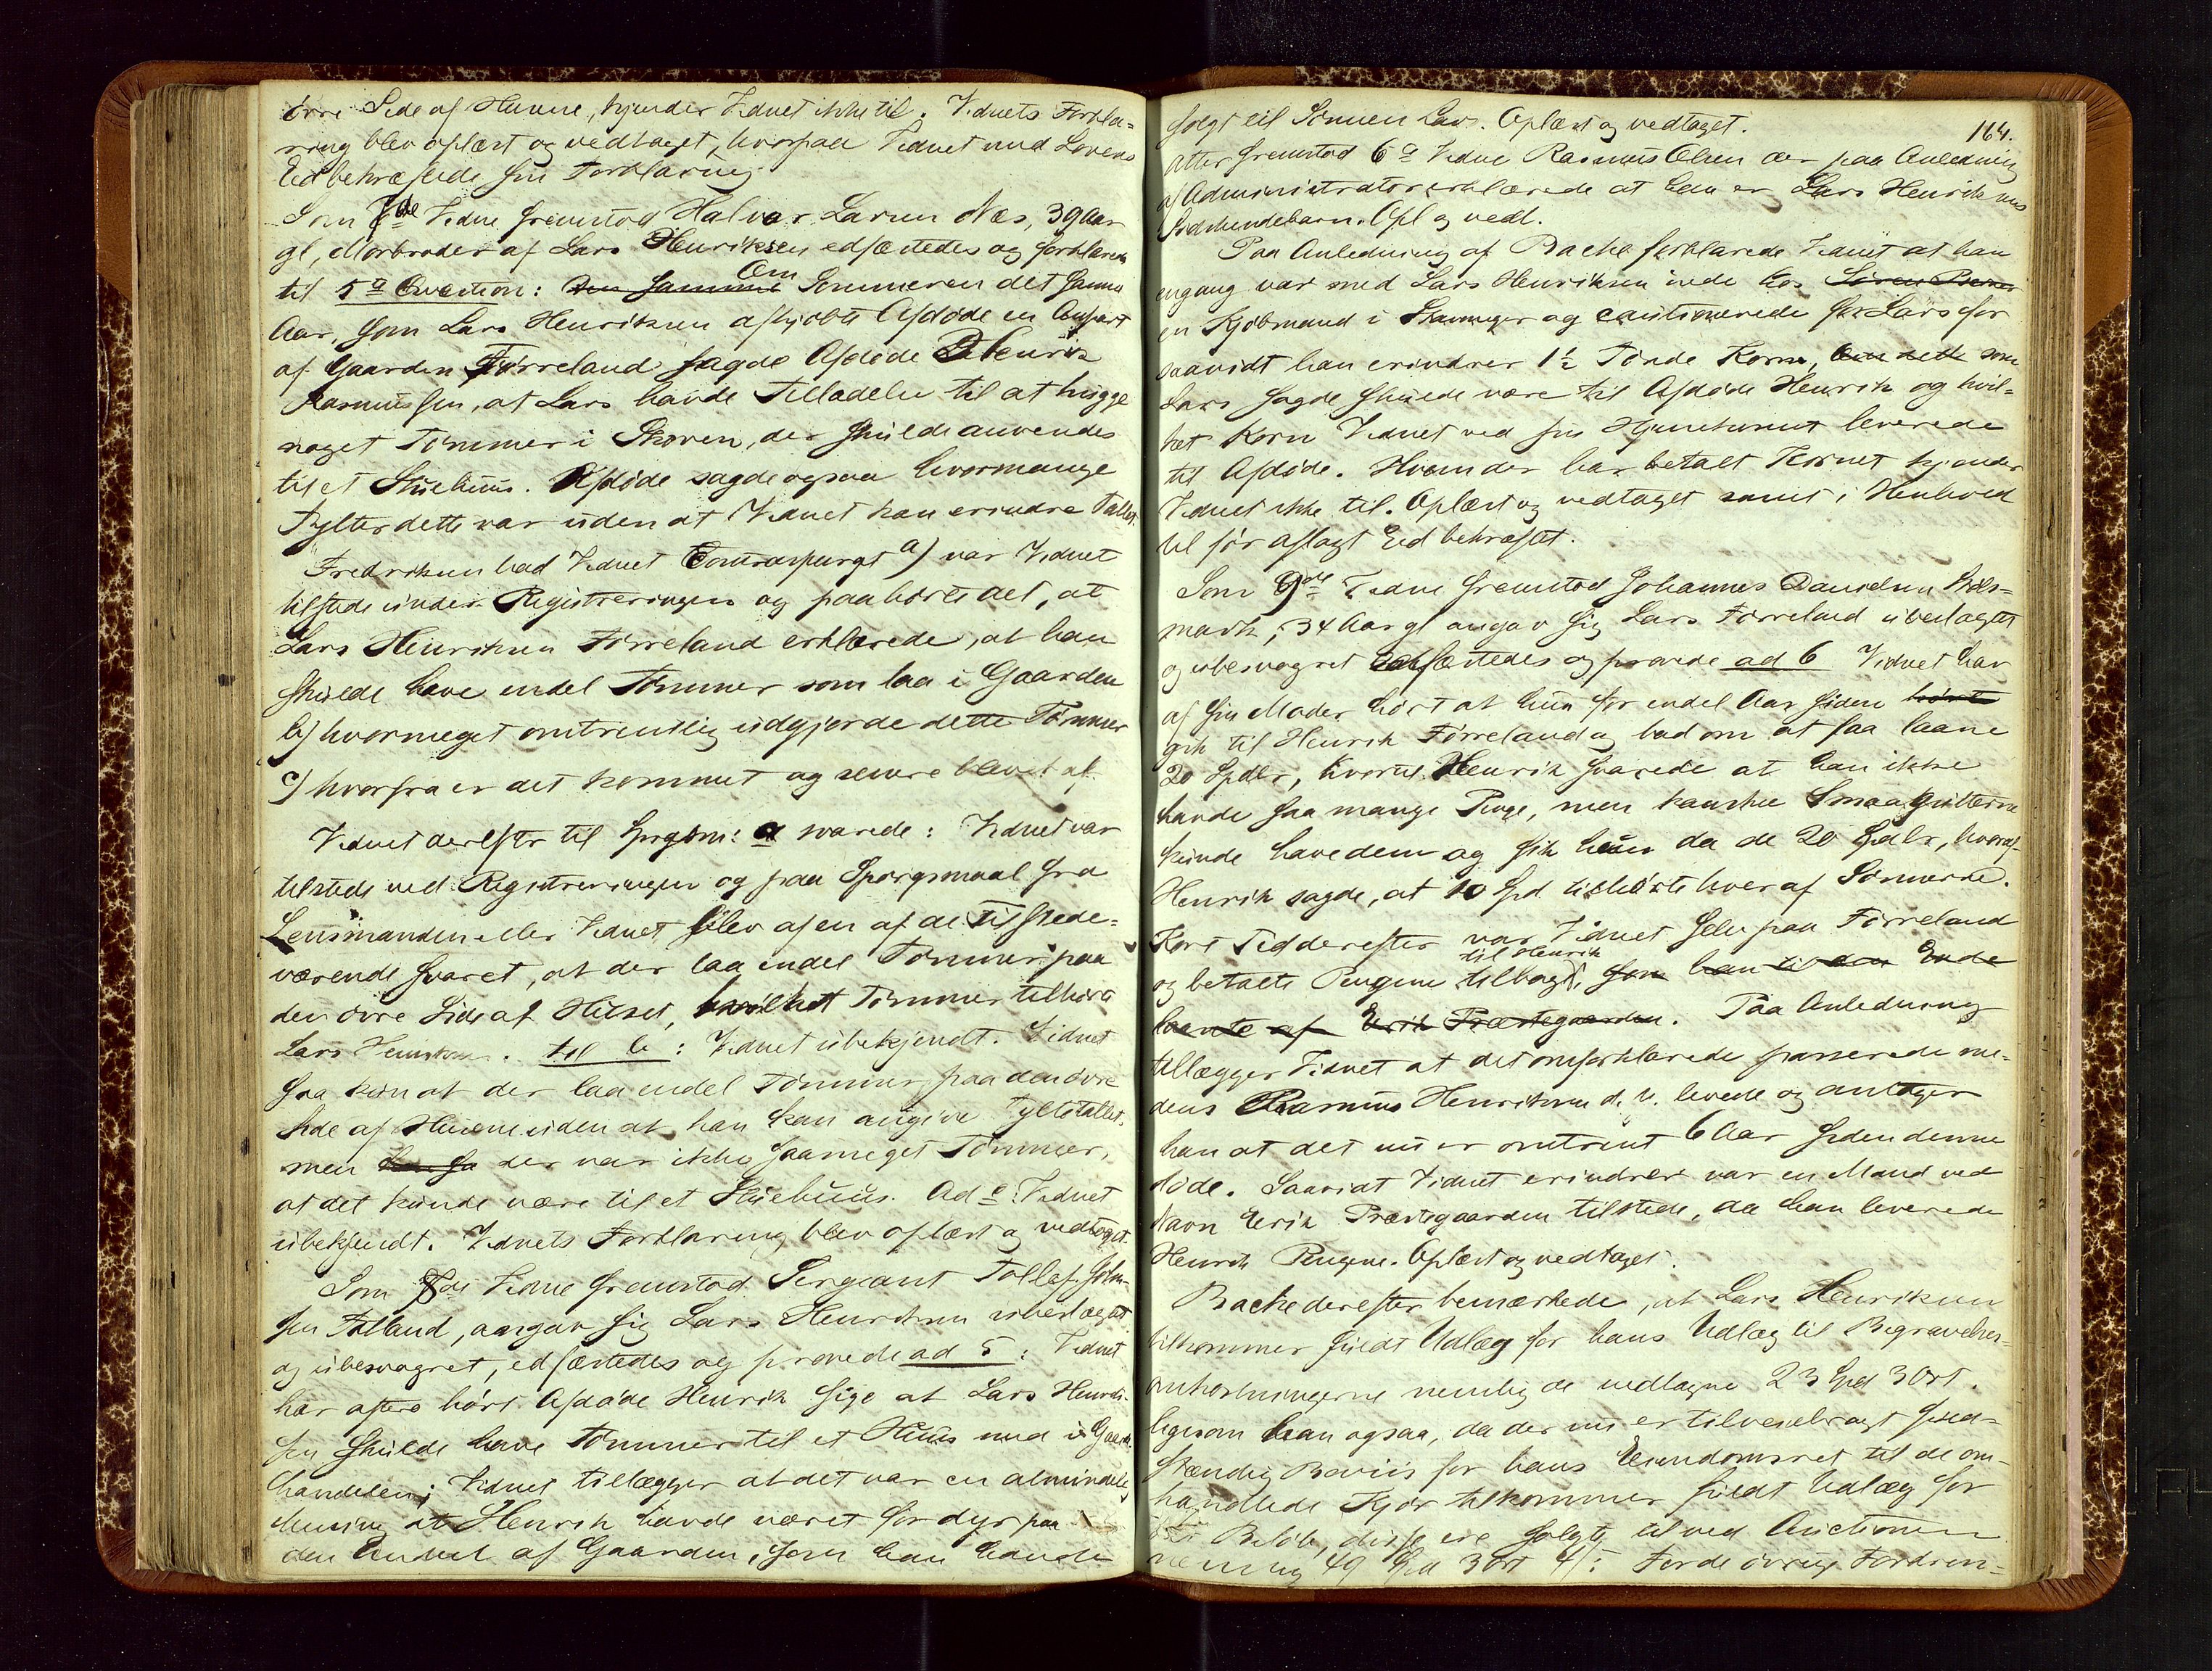 övre Side af Husene, kjender Vidnet ikke til. Vidnets Forkla=
ring blev oplæst og vedtaget, hvorpaa Vidnet med Lovens
Ed bekræftede sin Forklaring.
Som 7de Vidne fremstod Halvor Larsen Næs, 39 Aar
gl, Morbroder af Lars Henriksen edfæstedes og forklarede
til 5te Qvæstion: Den samme Om Sommeren det samme
Aar, som Lars Henriksen afkjøbte Afdøde en Anpart
af Gaarden Førreland sagde Afdøde Henrik
Rasmussen, at Lars havde Tilladelse til at hugge
noget Tømmer i Skoven, der skulde anvendes
til et Stuehuus. Afdøde sagde ogsaa hvormange
Tylter dette var uden at Vidnet kan erindre Tallet.
Fredriksen bad Vidnet Contraspurgt a) var Vidnet
tilstede under Registreringen og paahørte det, at
Lars Henriksen Førreland erklærede, at han
skulde have endel Tømmer som laa i Gaarden
b) hvormeget omtrentlig udgjorde dette Tømmer
c) hvorfra er det kommet og senere blevet af.
Vidnet derefter til Spgsm: a svarede: Vidnet var
tilstede ved Registreringen og paa Spørgsmaal fra
Lensmanden eller Vidnet blev af en af de Tilstede=
værende svaret, at der laa endel Tømmer paa
den övre Side af Huset, hvilket Tømmer tilhørte
Lars Henriksen. til b: Vidnet ubekjendt. Vidnet
saa kun at der laa endel Tømmer paa den övre
Side af Husene uden at han kan angive Tyltetallet,
men der var ikke saameget Tømmer,
at det kunde være til et Stuehuus. Ad c: Vidnet
ubekjendt. Vidnets Forklaring blev oplæst og vedtaget.
Som 8de Vidne fremstod Sergeant Tollef
sen Aaland, angav sig Lars Henriksen ubeslægtet
og ubesvogret, edfæstedes og prøvede ad 5: Vidnet
har oftere hørt Afdøde Henrik sige at Lars Henrik-
sen skulde have Tømmer til et Huus med i Gaard-
handelen; Vidnet tillægger at det var en almindelig
Mening at Henrik havde været for dyr paa
den Andeel af Gaarden, som han havde
164.
solgt til Sønnen Lars. Oplæst og vedtaget.
Atter fremstod 6te Vidne Rasmus Olsen der paa Anledning
af Administrator erklærede at han er Lars Henriksens
Sødskendebarn. Opl og vedt.
Paa Anledning af Backe forklarede Vidnet at han
engang var med Lars Henriksen inde hos Søren
en Kjøbmand i Stavanger og cautionerede for Lars for
saavidt han erindrer 1½ Tønde Korn, som
Lars sagde skulde være til Afdøde Henrik og hvil=
ket Korn Vidnet ved sin Hjemkomst leverede
til Afdøde. Hvem der har betalt Kornet kjender
Vidnet ikke til. Oplæst og vedtaget samt i Henhold
til før aflagt Ed bekræftet.
Som 9de Vidne fremstod Johannes Danielsen
mark, 34 Aar gl angav sig Lars Førreland ubeslægtet
og ubesvogret edfæstedes og prøvede ad 6 Vidnet har
af sin Moder hørt at hun for endel Aar siden hørte
gik til Henrik Førreland og bad om at faa laane
20 Spdlr, hvortil Henrik svarede at han ikke
havde saa mange Penge, men kanskee Smaagutterne
kunde have dem og fik hun da de 20 Spdlr, hvoraf
Henrik sagde, at 10 Spd tilhørte hver af Sønnerne.
Kort Tid derefter var Vidnet selv paa Førreland
og betalte Pengene tilbage til Henrik, som han til den Ende
laante af Erik Præstegaarden. Paa Anledning
tillægger Vidnet at det omforklarede passerede me-
dens Rasmus Henriksen d. y. levede og antager
han at det nu er omtrent 6 Aar siden denne
døde. Saavidt Vidnet erindrer var en Mand ved
Navn Erik Præstegaarden tilstede, da han leverede
Henrik Pengene. Oplæst og vedtaget.
Backe derefter bemærkede, at Lars Henriksen
tilkommer fuldt Udlæg for hans Udlæg til Begravelses-
omkostningerne nemlig de vedtagne 23 Spd 3 Ort.
ligesom han ogsaa, da der nu er tilveiebragt fuld=
stændig Beviis for hans Eiendomsret til de om-
handlede Kjør tilkommer fuldt Udlæg for
det Beløb, disse ere solgte til ved Auctionen
nemlig 49 Spd 3 Ort 4 s: For de øvrige Fordrin=